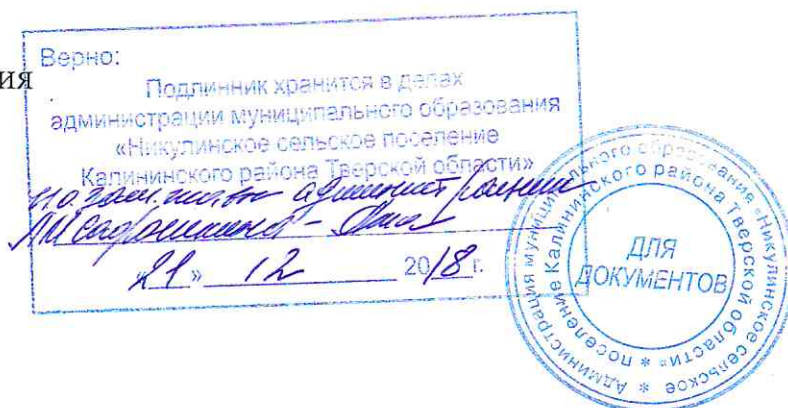 ия
Верно:
Подлинник хранится в делах
администрации муниципального образования
«Никулинское сельское поселение
Калининского района Тверской области»
И.о. зам. главы администрации
«21» 12 2018 г.
Администрация муниципального образования «Никулинское сельское
поселение Калининского района Тверской области»
ДЛЯ
ДОКУМЕНТОВ